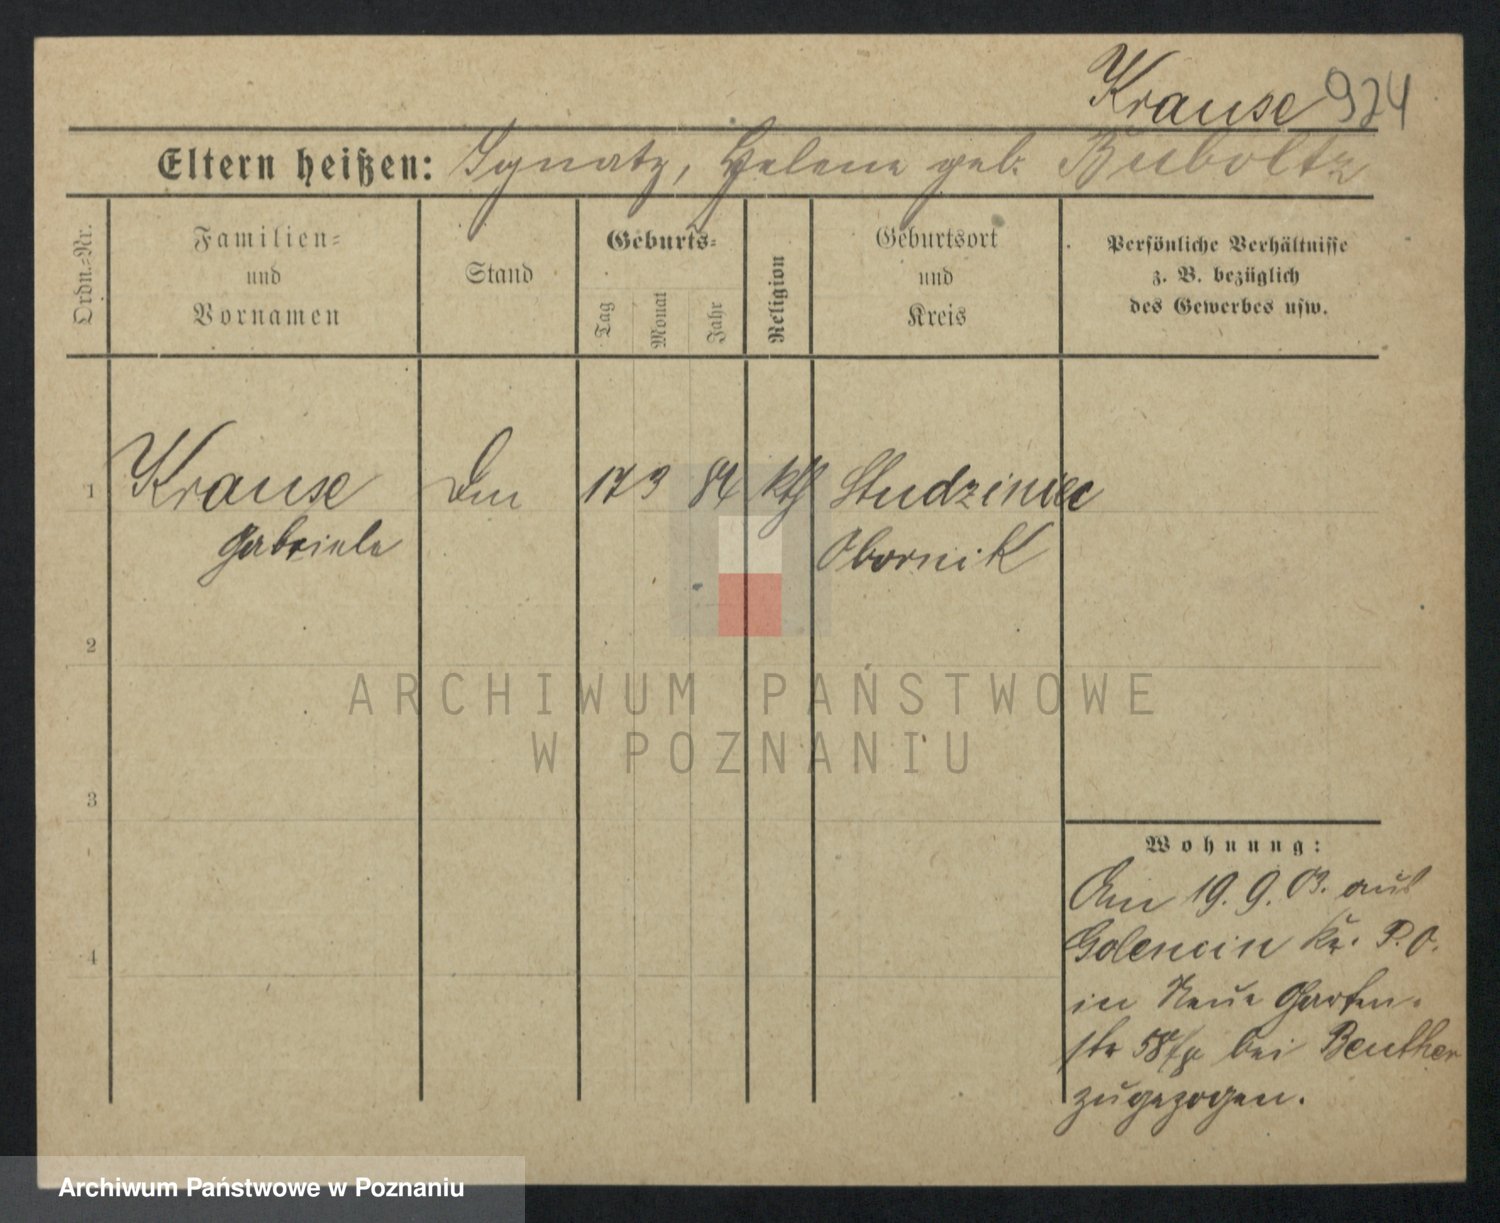 Krause 924
Eltern heißen: Ignatz, Helene geb. Buboltz
Ordn.-Nr.
Familien-
und
Vornamen
Stand
Geburts-
Tag
Monat
Jahr
Religion
Geburtsort
und
Kreis
Persönliche Verhältnisse
z. B. bezüglich
des Gewerbes usw.
1 Krause 17 3 84 kth Studziniec
Gabriele Obornik
2
ARCHIWUM PAŃSTWOWE
W POZNANIU
3
Wohnung:
Am 19. 9. 03. aus
Golencin Kr. P. O.
4
in Neue Garten-
str 58 bei Beuther
zugezogen.
Archiwum Państwowe w Poznaniu